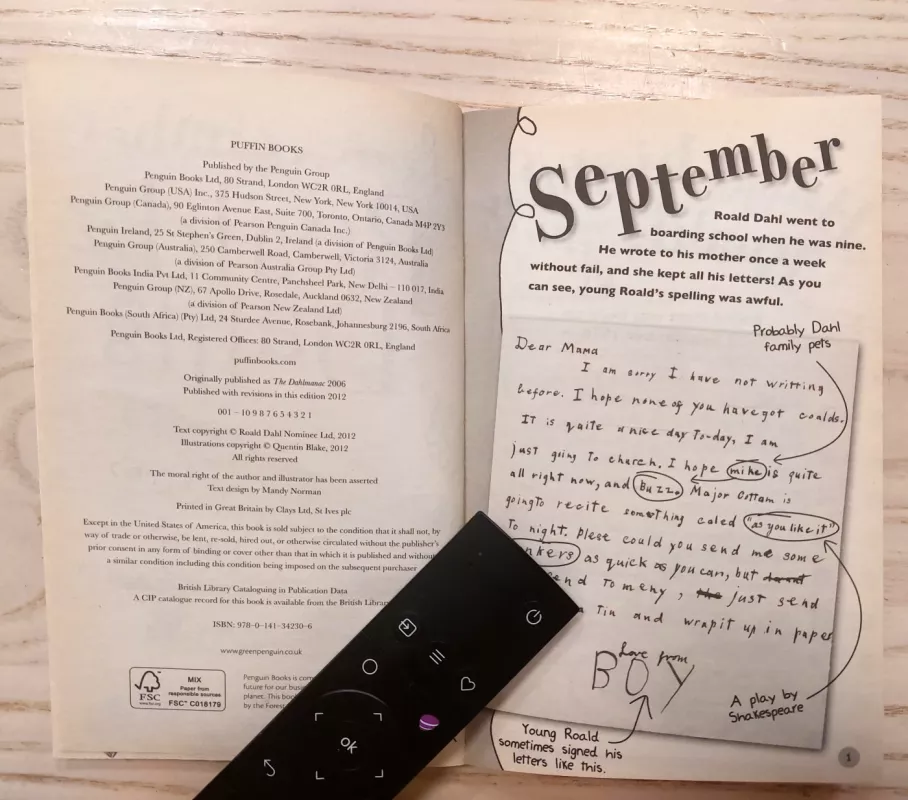 PUFFIN BOOKS
Published by the Penguin Group
Penguin Books Ltd, 80 Strand, London WC2R 0RL, England
Penguin Group (USA) Inc., 375 Hudson Street, New York, New York 10014, USA
Penguin Group (Canada), 90 Eglinton Avenue East, Suite 700, Toronto, Ontario, Canada M4P 2Y3
(a division of Pearson Penguin Canada Inc.)
Penguin Ireland, 25 St Stephen's Green, Dublin 2, Ireland (a division of Penguin Books Ltd)
Penguin Group (Australia), 250 Camberwell Road, Camberwell, Victoria 3124, Australia
(a division of Pearson Australia Group Pty Ltd)
Penguin Books India Pvt Ltd, 11 Community Centre, Panchsheel Park, New Delhi – 110 017, India
Penguin Group (NZ), 67 Apollo Drive, Rosedale, Auckland 0632, New Zealand
(a division of Pearson New Zealand Ltd)
Penguin Books (South Africa) (Pty) Ltd, 24 Sturdee Avenue, Rosebank, Johannesburg 2196, South Africa
Penguin Books Ltd, Registered Offices: 80 Strand, London WC2R 0RL, England
puffinbooks.com
Originally published as The Dahlmanac 2006
Published with revisions in this edition 2012
001 – 10 9 8 7 6 5 4 3 2 1
Text copyright © Roald Dahl Nominee Ltd, 2012
Illustrations copyright © Quentin Blake, 2012
All rights reserved
The moral right of the author and illustrator has been asserted
Text design by Mandy Norman
Printed in Great Britain by Clays Ltd, St Ives plc
Except in the United States of America, this book is sold subject to the condition that it shall not, by
way of trade or otherwise, be lent, re-sold, hired out, or otherwise circulated without the publisher's
prior consent in any form of binding or cover other than that in which it is published and without
a similar condition including this condition being imposed on the subsequent purchaser
British Library Cataloguing in Publication Data
A CIP catalogue record for this book is available from the British
ISBN: 978-0-141-34230-6
www.greenpenguin.co.uk
FSC
www.fsc.org
MIX
Paper from
responsible sources
FSC® C018179
Penguin Books is
future for our
planet. This
by the
OK
September
Roald Dahl went to
boarding school when he was nine.
He wrote to his mother once a week
without fail, and she kept all his letters! As you
can see, young Roald's spelling was awful.
Probably Dahl
family pets
Dear Mama
I am sorry I have not writting
before. I hope none of you have got coalds.
IT is quite a nice day To-day, I am
just going To church. I hope mike is quite
all right now, and Buzz. Major Cottam is
going to recite something caled "as you like it"
To night. Plese could you send me some
as quick as you can, but
To meny, just send
Tin and wrap it up in paper
Love from
BOY
A play by
Shakespeare
Young Roald
sometimes signed his
letters like this.
1